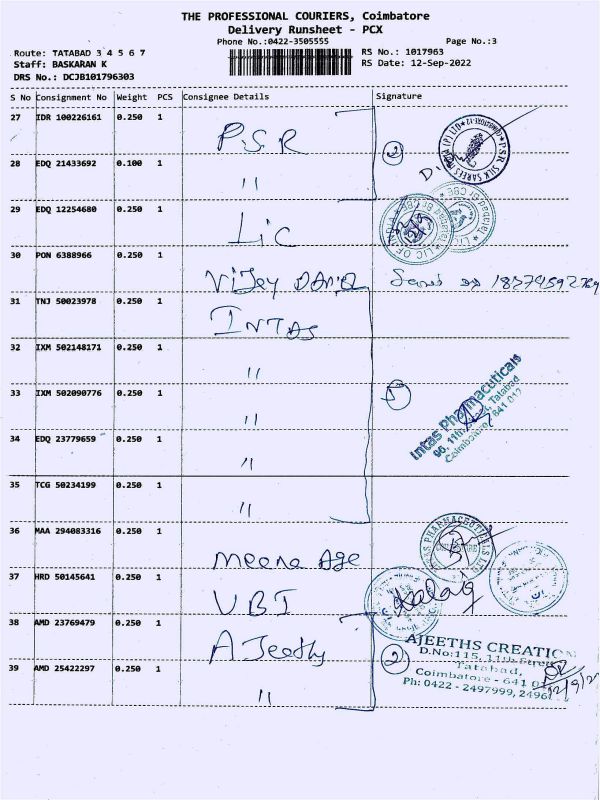 THE PROFESSIONAL COURIERS, Coimbatore
Delivery Runsheet - PCX
Phone No.:0422-3505555
Page No.:3
Route: TATABAD 3 4 5 6 7
RS No.: 1017963
Staff: BASKARAN K
RS Date: 12-Sep-2022
DRS No.: DCJB101796303
S No Consignment No Weight PCS Consignee Details Signature
27 IDR 100226161 0.250 1 P.S.R
28 EDQ 21433692 0.100 1 "
2
P.S.R. SILK SAREES
29 EDQ 12254680 0.250 1 LIC
LIC OF
Tatabad Br CBE
30 PON 6388966 0.250 1 Vijey
31 TNJ 50023978 0.250 1 INTAS
32 IXM 502148171 0.250 1 "
33 IXM 502090776 0.250 1 "
5
Intas Pharmaceuticals
Tatabad
Coimbatore - 641 012
34 EDQ 23779659 0.250 1 "
35 TCG 50234199 0.250 1 "
36 MAA 294083316 0.250 1 meena Age
PHARMACEUTICALS
37 HRD 50145641 0.250 1 UBI
38 AMD 23769479 0.250 1 AJeeths
39 AMD 25422297 0.250 1 "
2
AJEETHS CREATION
D.No:115, 11th Street
Tatabad,
Coimbatore - 641
Ph: 0422 - 2497999, 2496